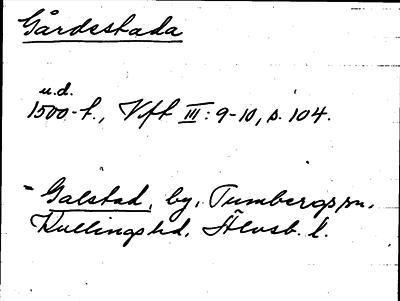 Gårdsstada
u.d.
1500-t., Vft III: 9-10, s. 104.
- Galstad, by, Tumbergs sn,
Kullings hd, Älvsb. l.